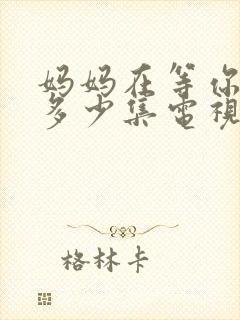 妈妈在等你
多少集電視
格林卡